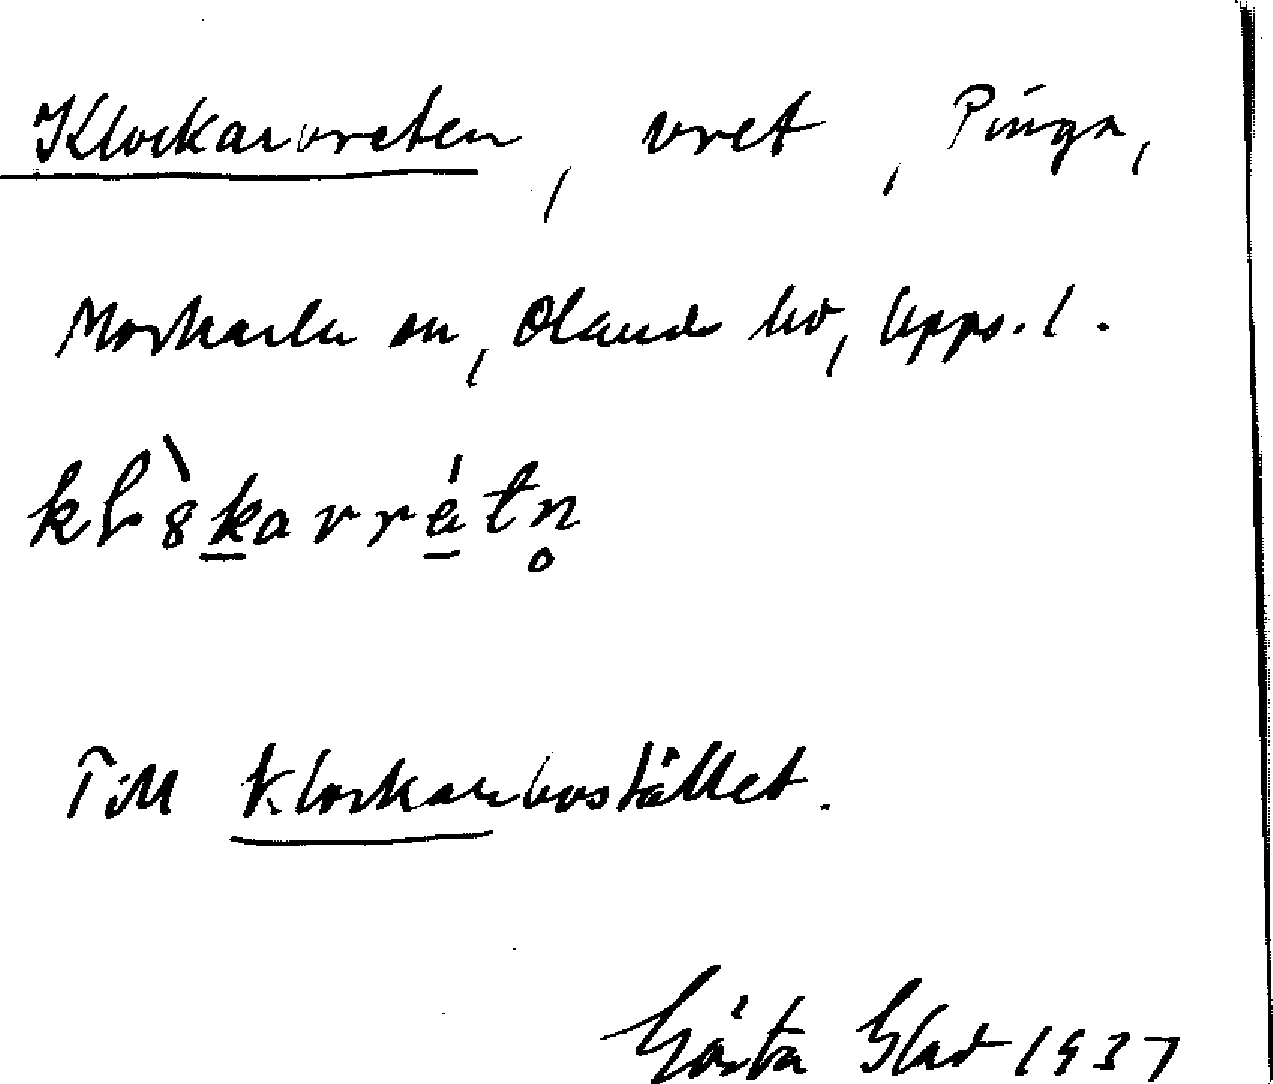 Klockarvreten, vret, Pinga,
Morkarla sn, Olands hd, Upps. l.
Till Klockarbostället.
Gösta Blad 1937